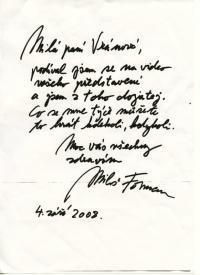 Milá paní Vránová,
podíval jsem se na video
vašeho představení
a jsem z toho dojatej.
Co se mne týče můžete
to hrát kdekoli, kdykoli.
Moc vás všechny
zdravím
Miloš Forman
4. září 2008.